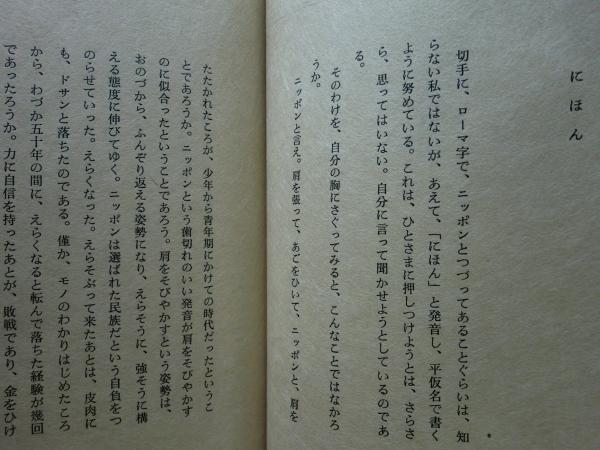 にほん
切手に、ローマ字で、ニッポンとつづってあることぐらいは、知
らない私ではないが、あえて、「にほん」と発音し、平仮名で書く
ように努めている。これは、ひとさまに押しつけようとは、さらさ
ら、思ってはいない。自分に言って聞かせようとしているのであ
る。
そのわけを、自分の胸にさぐってみると、こんなことではなかろ
うか。
ニッポンと言え。肩を張って、あごをひいて、ニッポンと、肩を
たたかれたころが、少年から青年期にかけての時代だったというこ
とであろうか。ニッポンという歯切れのいい発音が肩をそびやかす
のに似合ったということであろう。肩をそびやかすという姿勢は、
おのづから、ふんぞり返える姿勢になり、えらそうに、強そうに構
える態度に伸びてゆく。ニッポンは選ばれた民族だという自負をつ
のらせていった。えらくなった。えらそぶって来たあとは、皮肉に
も、ドサンと落ちたのである。僅か、モノのわかりはじめたころ
から、わづか五十年の間に、えらくなると転んで落ちた経験が幾回
であったろうか。力に自信を持ったあとが、敗戦であり、金をひけ